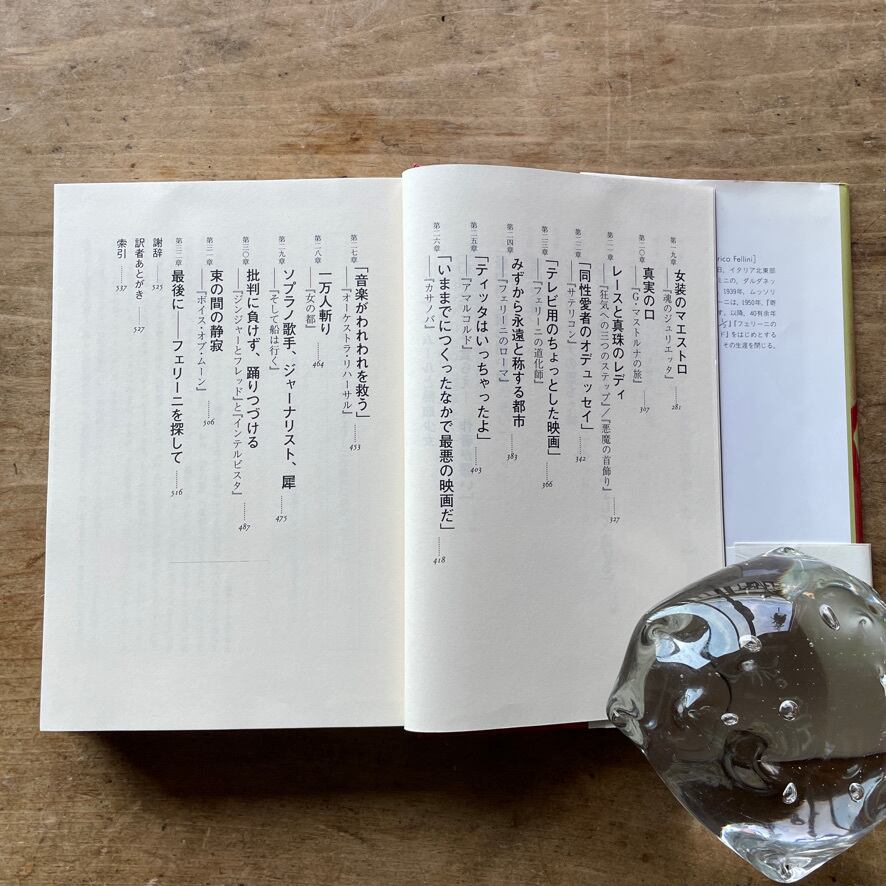 第一九章
女装のマエストロ
――『魂のジュリエッタ』 281
第二〇章
真実の口
――『G・マストルナの旅』 307
第二一章
レースと真珠のレディ
――『狂気への三つのステップ』/『悪魔の首飾り』 327
第二二章
「同性愛者のオデュッセイ」
――『サテリコン』 342
第二三章
「テレビ用のちょっとした映画」
――『フェリーニの道化師』 366
第二四章
みずから永遠と称する都市
――『フェリーニのローマ』 383
第二五章
「ティッタはいっちゃったよ」
――『アマルコルド』 403
第二六章
「いままでにつくったなかで最悪の映画だ」
――『カサノバ』 418
第二七章
「音楽がわれわれを救う」
――『オーケストラ・リハーサル』 453
第二八章
一万人斬り
――『女の都』 464
第二九章
ソプラノ歌手、ジャーナリスト、犀
――『そして船は行く』 475
第三〇章
批判に負けず、踊りつづける
――『ジンジャーとフレッド』と『インテルビスタ』 487
第三一章
束の間の静寂
――『ボイス・オブ・ムーン』 506
第三二章
最後に――フェリーニを探して 516
謝辞 525
訳者あとがき 527
索引 537
rico Fellini]
日、イタリア北東部
ミニの、ダルダネッ
1939年、ムッソリ
ーニは、1950年、『寄
す。以降、40有余年
½』『フェリーニの
ド』をはじめとする
その生涯を閉じる。